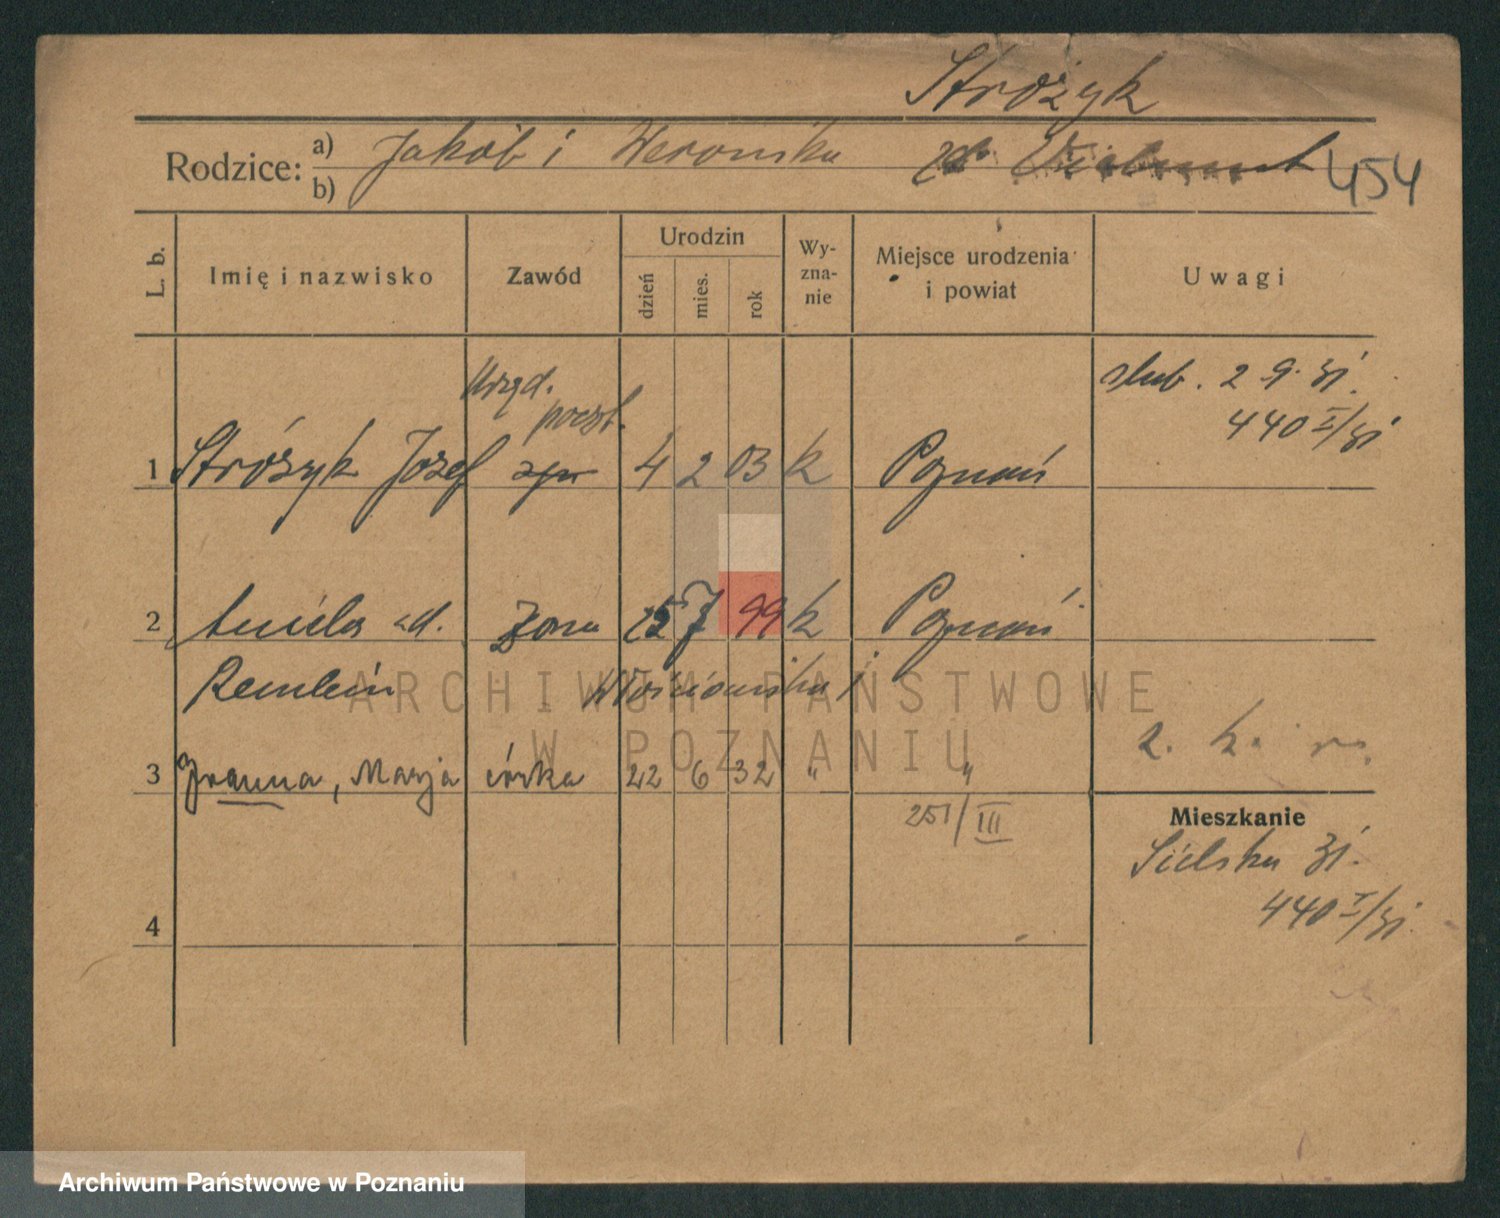 Stróżyk
Rodzice: a) Jakób i Weronika zd.
b)
454
L. b.
Imię i nazwisko
Zawód
Urodzin
dzień
mies.
rok
Wy-
zna-
nie
Miejsce urodzenia
i powiat
Uwagi
Urzęd.
poczt.
ślub. 2 9. 31.
440 I/31
1 Stróżyk Józef 4 2 03 k Poznań
2 Aniela zd. żona 25 7 99 k Poznań
Remlein
3 Joanna, Marja córka 22 6 32 " "
251/III
z. k. r.
Mieszkanie
Sielska 31.
440 I/31.
4
ARCHIWUM PAŃSTWOWE
W POZNANIU
Archiwum Państwowe w Poznaniu